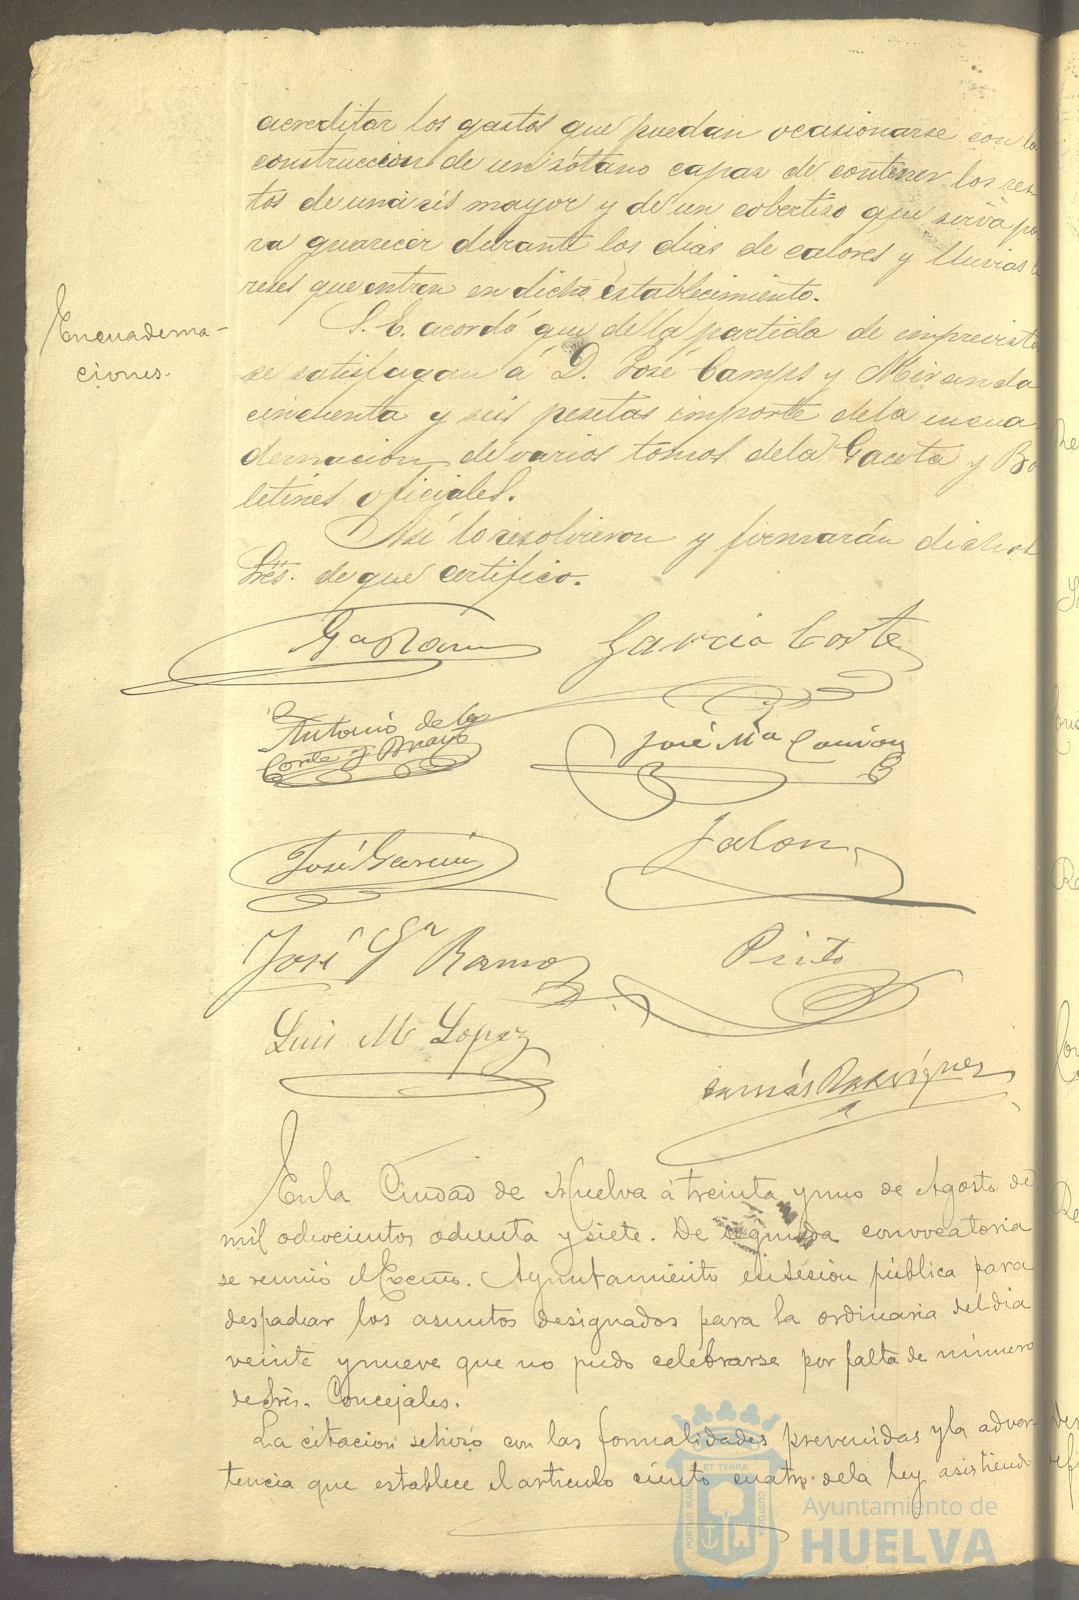 acreditar los gastos que puedan ocasionarse con la
construccion de un sótano capaz de contener los res-
tos de una res mayor y de un cobertizo que sirva pa-
ra guarecer durante los dias de calores y lluvias
reses que entren en dicho establecimiento.
Encuaderna-
ciones.
S. E. acordó que de la partida de imprevistos
se satisfagan á D. José Camps y Miranda
cincuenta y seis pesetas importe de la encua
dernacion de varios tomos de la Gaceta y Bo
letines oficiales.
Así lo resolvieron y firmarán dichos
Sres. de que certifico.
Garcia Corte
Antonio de la
Corte y Brayo
José Mª
José Garcia
Jalon
José Gª Ramos
Pinto
Luis M Lopez
Tomás Rodriguez
En la Ciudad de Huelva á treinta y uno de Agosto de
mil ochocientos ochenta y siete. De segunda convocatoria
se reunió el Excmo. Ayuntamiento en sesion pública para
despachar los asuntos designados para la ordinaria del dia
veinte y nueve que no pudo celebrarse por falta de número
de Sres. Concejales.
La citacion se hizo con las formalidades prevenidas y la adver-
tencia que establece el articulo ciento cuatro de la ley, asistiendo
PORTUS MARIS ET TERRÆ CUSTODIA
Ayuntamiento de
HUELVA